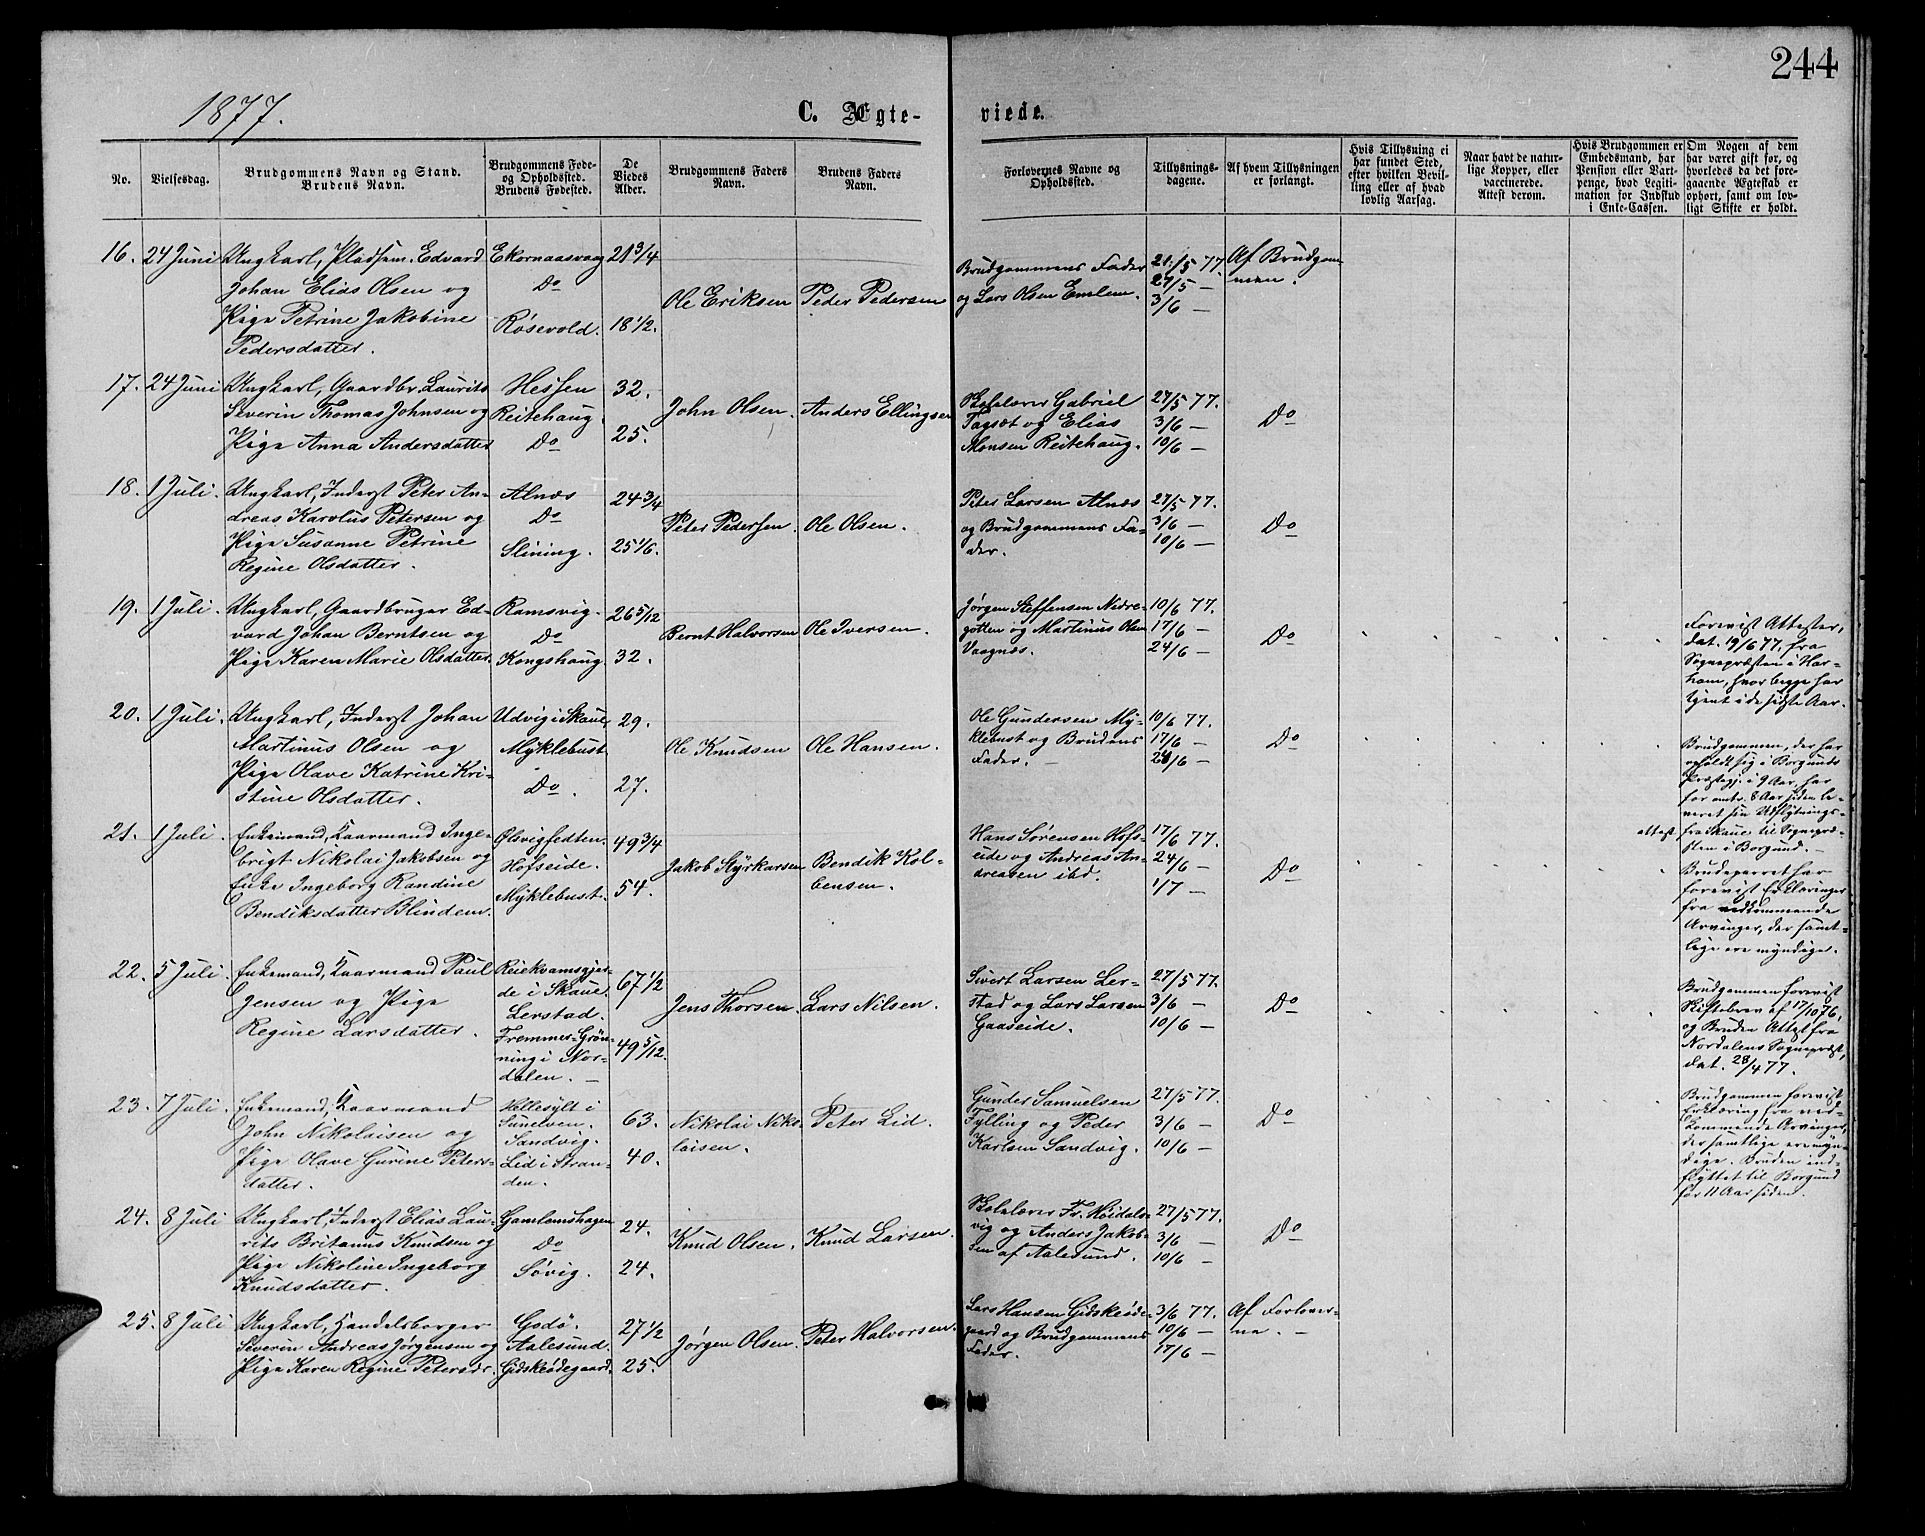 244
1877.
C. Ægte-
viede.
No.
Vielsesdag.
Brudgommens Navn og Stand.
Brudens Navn.
Brudgommens Føde-
og Opholdssted.
Brudens Fødested.
De
Viedes
Alder.
Brudgommens Faders
Navn.
Brudens Faders
Navn.
Forlovernes Navne og
Opholdssted.
Tillysnings-
dagene.
Af hvem Tillysningen
er forlangt.
Hvis Tillysning ei
har fundet Sted,
efter hvilken Bevil-
ling eller af hvad
lovlig Aarsag.
Naar havt de natur-
lige Kopper, eller
vaccinerede.
Attest derom.
Hvis Brudgommen er
Embedsmand, har
Pension eller Vart-
penge, hvad Legiti-
mation for Indskud
i Enke-Cassen.
Om Nogen af dem
har været gift før, og
hvorledes da det fore-
gaaende Ægteskab er
ophørt, samt om lov-
ligt Skifte er holdt.
16. 24 Juni
Ungkarl, Pladsem. Edvard
Johan Elias Olsen og
Pige Petrine Jakobine
Pedersdatter.
Ekornaasvaag
Do
Røsevold.
21 3/4
18 1/2.
Ole Eriksen
Peder Pedersen
Brudgommens Fader
og Lars Olsen Emlem.
21/5 77.
27/5 —
3/6 —
Af Brudgom-
men.
17. 24 Juni
Ungkarl, Gaardbr. Laurits
Severin Thomas Johnsen og
Pige Anna Andersdatter
Hessen
Reitehaug.
Do
32.
25.
John Olsen.
Anders Ellingsen
Skolelærer Gabriel
Fagsæt og Elias
Monsen Reitehaug.
27/5 77.
3/6 —
10/6 —
Do
18. 1 Juli.
Ungkarl, Inderst Peter An-
dreas Karolus Petersen og
Pige Susanne Petrine
Regine Olsdatter.
Alnæs
Do
Slining.
24 3/4
25 1/6.
Peter Pedersen.
Ole Olsen.
Peter Larsen Alnæs
og Brudgommens Fa-
der.
27/5 77.
3/6 —
10/6 —
Do
19. 1 Juli.
Ungkarl, Gaardbruger Ed-
vard Johan Berntsen og
Pige Karen Marie Olsdatter.
Ramsvig.
Do
Kongshaug
26 5/12
32.
Bernt Halvorsen
Ole Iversen.
Jørgen Steffensen Nedre-
gotten og Martinus Olsen
Vaagnæs.
10/6 77.
17/6 —
24/6 —
Do
Forevist Attester,
dat. 19/6 77, fra
Sognepræsten i Har-
ham, hvor begge har
tjent i de sidste Aar.
20. 1 Juli.
Ungkarl, Inderst Johan
Martinus Olsen og
Pige Olave Katrine Kri-
stine Olsdatter.
Udvig i Skaue
Myklebust.
Do.
29.
27.
Ole Knudsen
Ole Hansen.
Ole Gundersen My-
klebust og Brudens
Fader. —
10/6 77.
17/6 —
24/6 —
Do
Brudgommen, der har
opholdt sig i Borgunds
Præstegj. i 9 Aar, har
for omtr. 8 Aar siden le-
veret sin Udflytnings-
attest fra Skaue til Sognepræ-
sten i Borgund. —
21. 1 Juli.
Enkemand, Kaarmand Inge-
brigt Nikolai Jakobsen og
Enke Ingeborg Randine
Bendiksdatter Blindem.
Ølsvigfedten.
Hofseide.
Myklebust.
49 3/4
54.
Jakob Styrkarsen
Bendik Kol-
bensen.
Hans Sørensen Hofs-
eide og Andreas An-
dreasen ibd.
17/6 77.
24/6 —
1/7 —
Do
Brudeparret har
forevist Erklæringer
fra vedkommende
Arvinger, der samt-
lige ere myndige.
22. 5 Juli.
Enkemand, Kaarmand Paul
Jensen og Pige
Regine Larsdatter.
Reiekvamsgjer-
de i Skaue.
Lerstad.
Fremmer-Grøn-
ning i Nor-
dalen. —
67 1/2
49 5/12.
Jens Thorsen.
Lars Nilsen.
Sivert Larsen Ler-
stad og Lars Larsen
Gaaseide.
27/5 77.
3/6 —
10/6 —
Do
Brudgommen forevist
Skiftebrev af 17/10 76,
og Bruden Attest fra
Nordalens Sognepræst,
dat. 28/4 77.
23. 7 Juli.
Enkemand, Kaarmand
John Nikolaisen og
Pige Olave Gurine Peters-
datter.
Hellesylt i
Sunelven.
Sandvig.
Lid i Stran-
den.
63.
40.
Nikolai Niko-
laisen.
Peter Lid.
Gunder Samuelsen
Fylling og Peder
Karlsen Sandvig.
27/5 77.
3/6 —
10/6 —
Do
Brudgommen forevist
Erklæring fra ved-
kommende Arvinger,
der samtlige ere myn-
dige. Bruden ind-
flyttet til Borgund
for 11 Aar siden.
24. 8 Juli
Ungkarl, Inderst Elias Lau-
rits Britanus Knudsen og
Pige Nikoline Ingeborg
Knudsdatter.
Gamlemshagen
Do
Søvig.
24.
24.
Knud Olsen.
Knud Larsen.
Skolelærer Fr. Høidals-
vig og Anders Jakob-
sen af Aalesund.
27/5 77.
3/6 —
10/6 —
Do
25. 8 Juli
Ungkarl, Handelsborger
Severin Andreas Jørgensen og
Pige Karen Regine Petersdr.
Godø.
Aalesund.
Gidskeødegaard.
27 1/2
25.
Jørgen Olsen.
Peter Halvorsen.
Lars Hansen Gidskeøde-
gaard og Brudgommens
Fader.
3/6 77.
10/6 —
17/6 —
Af Forlover-
ne. —